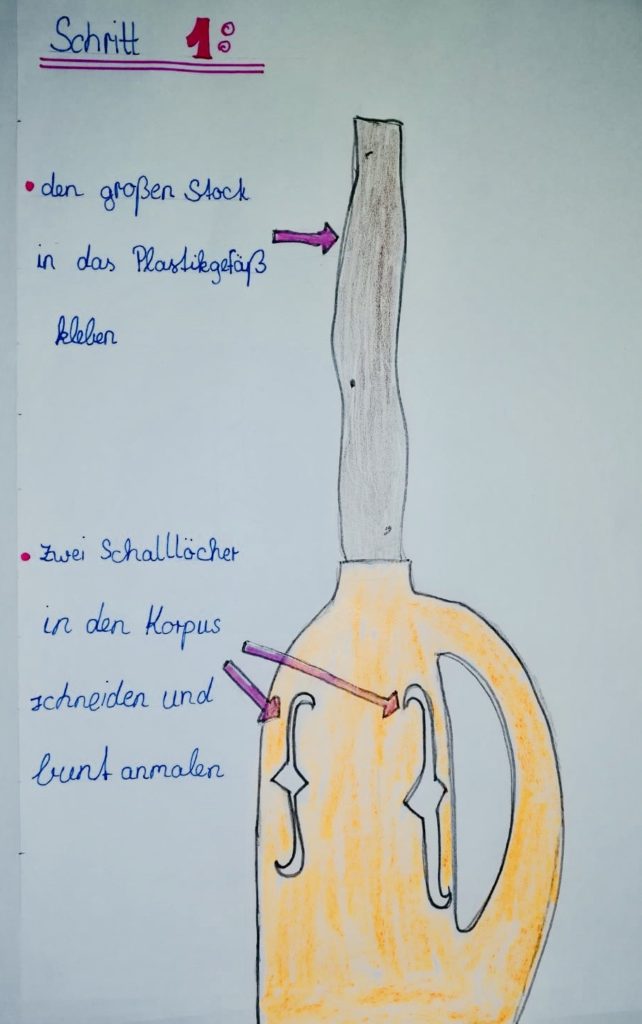 Schritt 1:
• den großen Stock
in das Plastikgefäß
kleben
• zwei Schalllöcher
in den Korpus
schneiden und
bunt anmalen